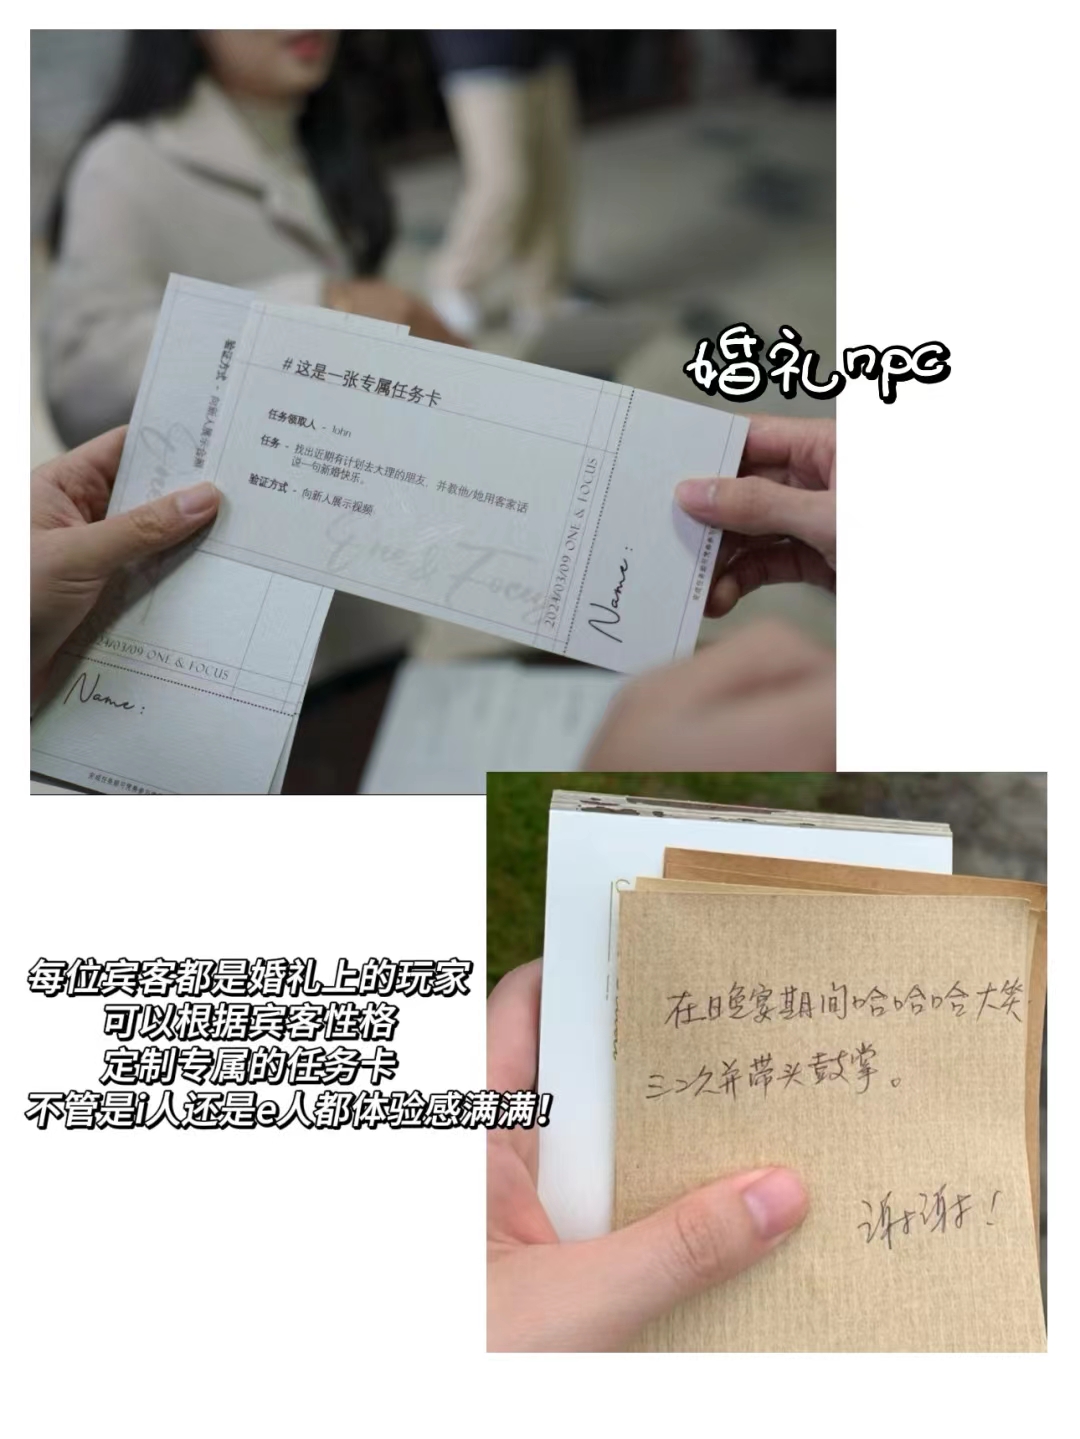 婚礼npc
#这是一张专属任务卡
任务领取人 - John
任务 - 找出近期有计划去大理的朋友，并教他/她用客家话
说一句新婚快乐。
验证方式 - 向新人展示视频
One & Focus
2024/03/09 ONE & FOCUS
Name:
验证方式 - 向新人展示合照
24/03/09 ONE & FOCUS
Name:
在晚宴期间哈哈哈大笑
三次并带头鼓掌。
谢谢！
每位宾客都是婚礼上的玩家
可以根据宾客性格
定制专属的任务卡
不管是i人还是e人都体验感满满！